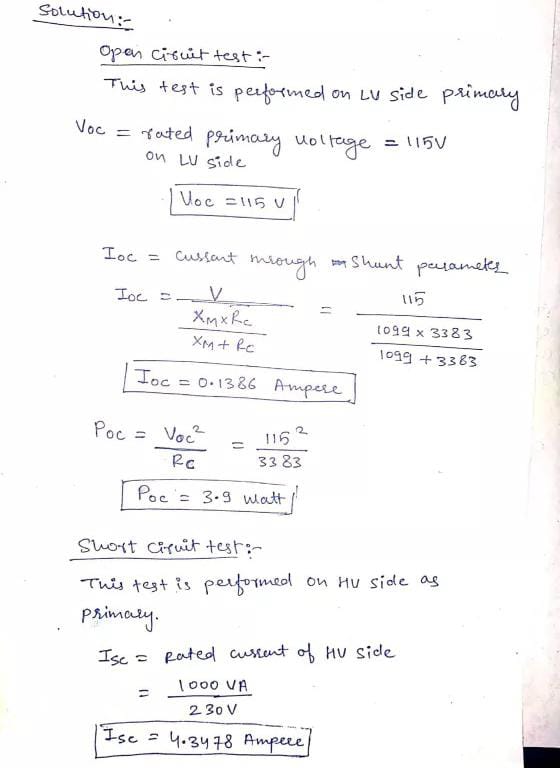 Solution:-
Open circuit test:-
This test is performed on LV side primary
Voc = rated primary voltage = 115V
on LV side
Voc = 115 V
Ioc = current through shunt parameter
Ioc = V / (XM×Rc / XM+Rc) = 115 / (1099 × 3383 / 1099 + 3383)
Ioc = 0.1386 Ampere
Poc = Voc² / Rc = 115² / 3383
Poc = 3.9 watt
Short circuit test:-
This test is performed on HV side as
primary.
Isc = Rated current of HV side
= 1000 VA / 230V
Isc = 4.3478 Ampere